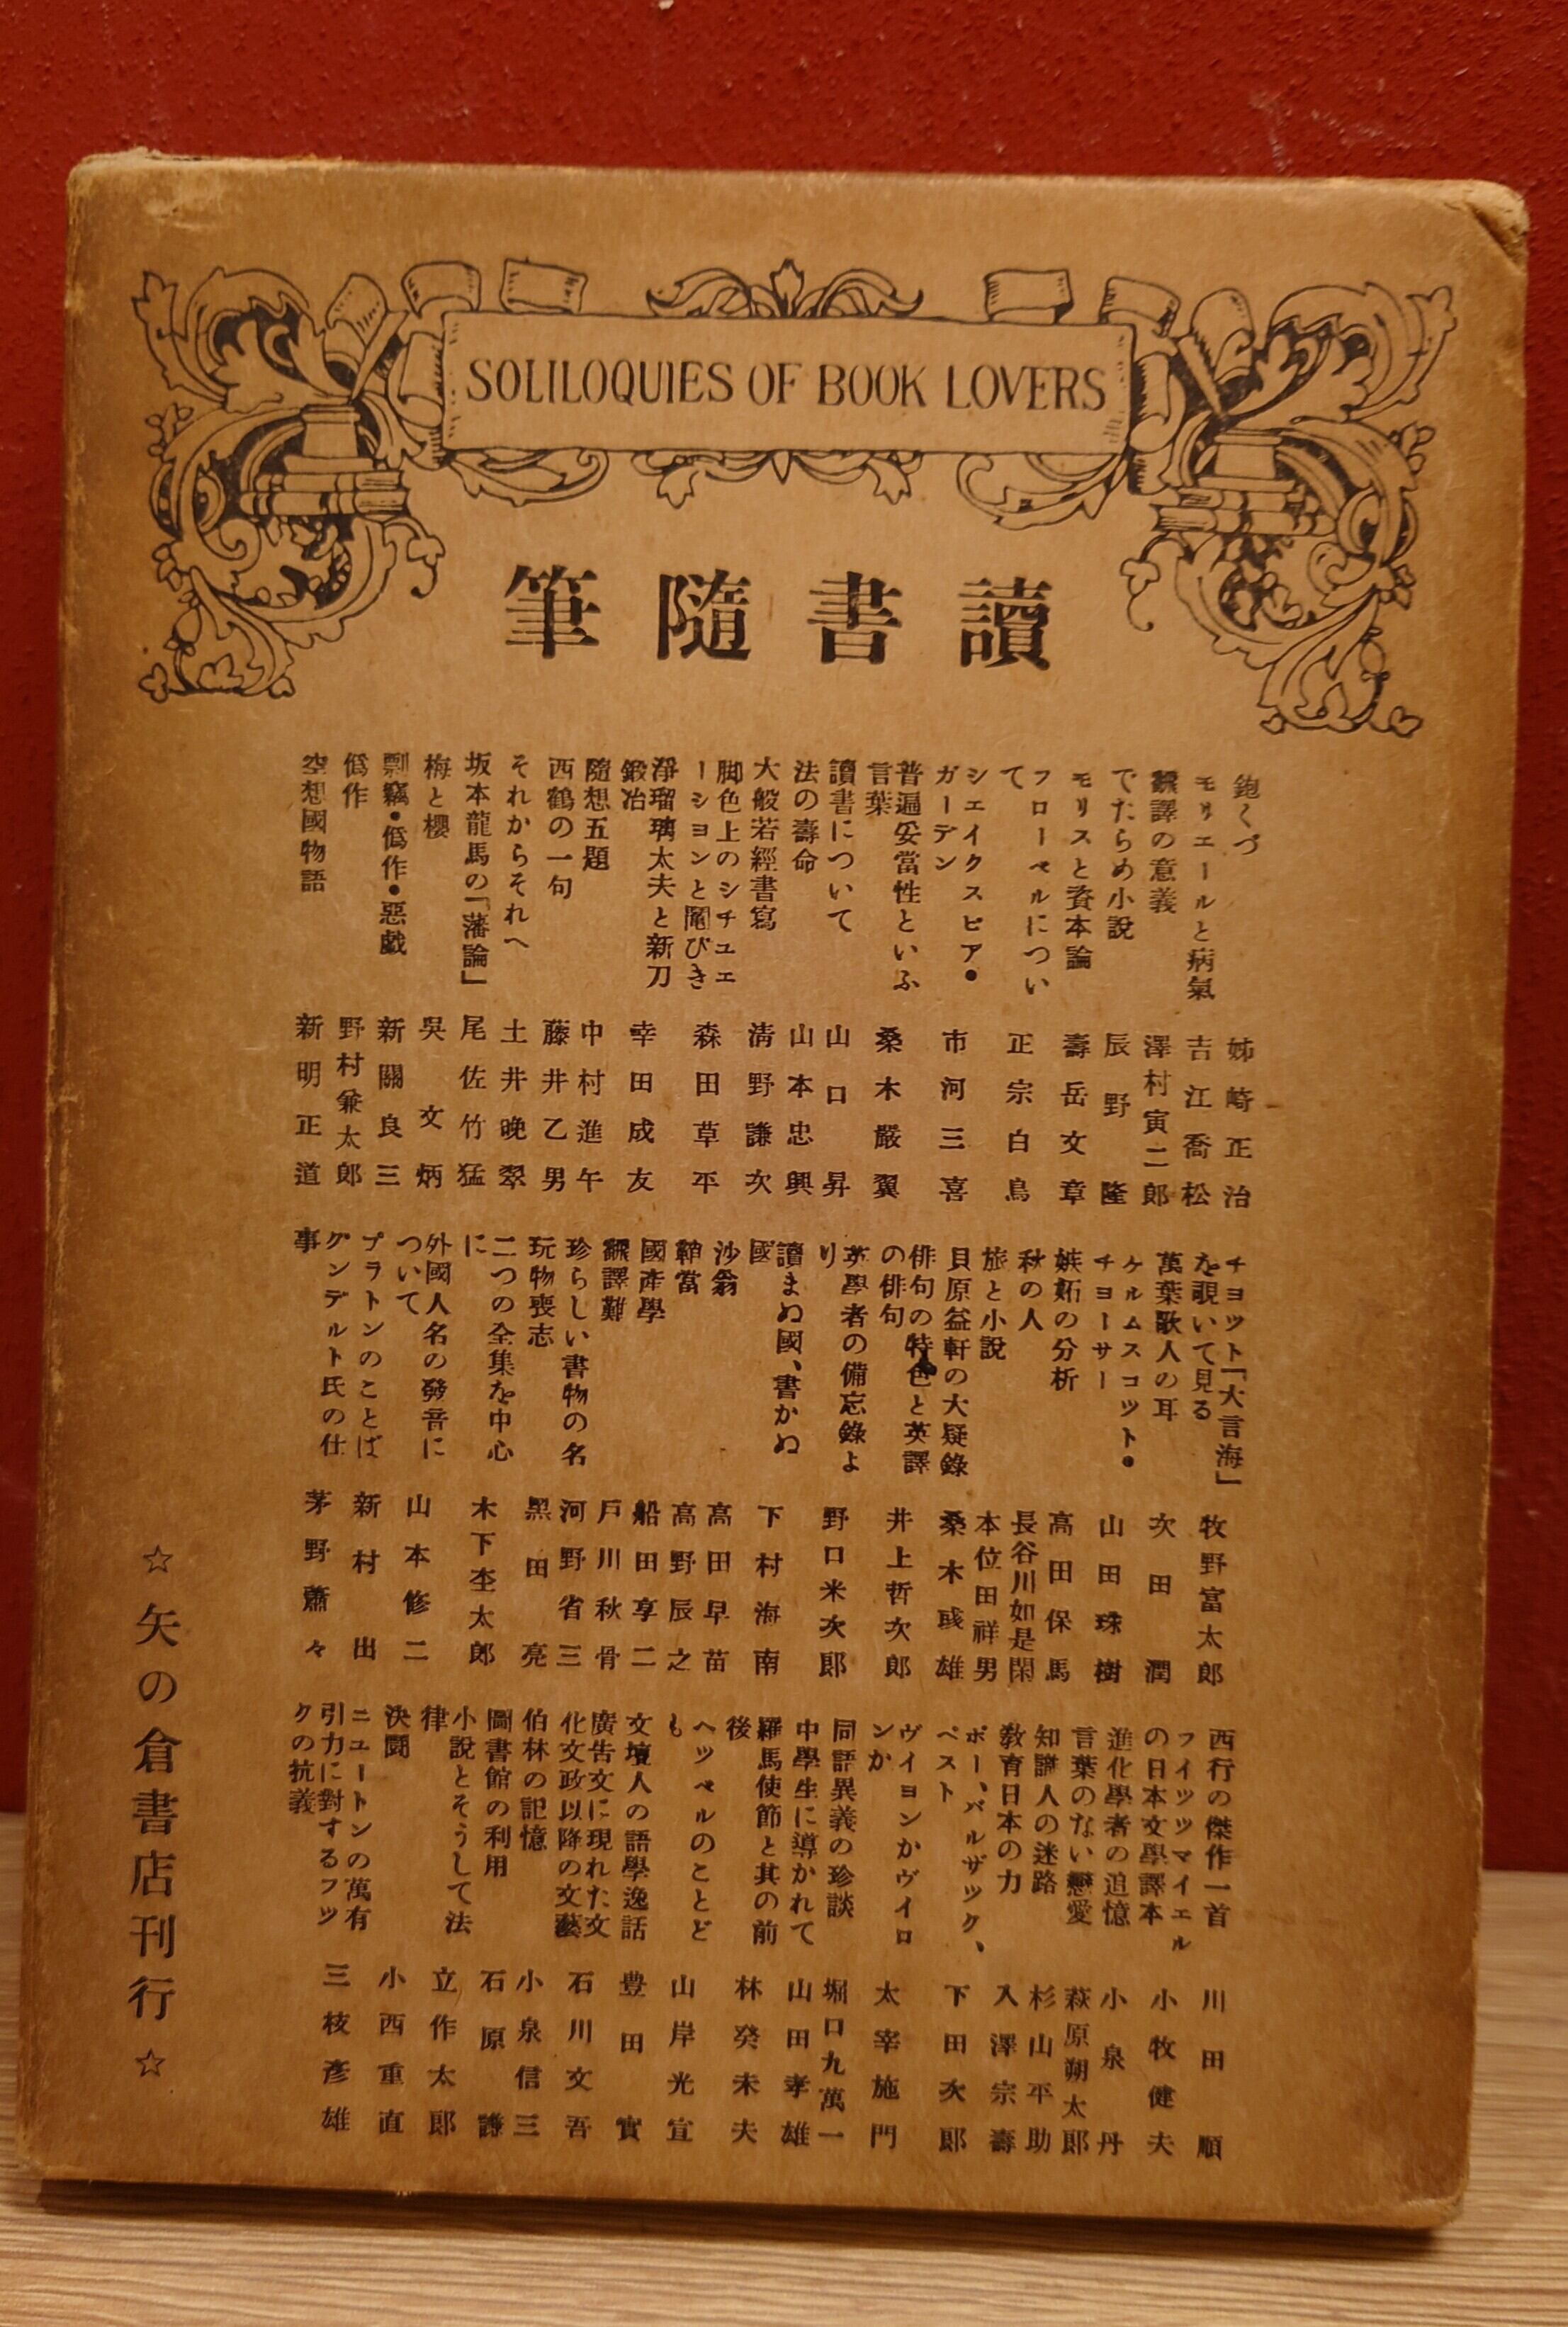 SOLILOQUIES OF BOOK LOVERS
讀書隨筆
鉋くづ
姊崎正治
モリエールと病氣
吉江喬松
飜譯の意義
澤村寅二郎
でたらめ小說
辰野隆
モリスと資本論
壽岳文章
フローベルについ
て
正宗白鳥
シエイクスピア・
ガーデン
市河三喜
普遍妥當性といふ
言葉
桑木嚴翼
讀書について
山口昇
法の壽命
山本忠興
大般若經書寫
淸野謙次
脚色上のシチユエ
ーシヨンと閽びき
森田草平
淨瑠璃太夫と新刀
鍛冶
幸田成友
隨想五題
中村進午
西鶴の一句
藤井乙男
それからそれへ
土井晚翠
坂本龍馬の「藩論」
尾佐竹猛
梅と櫻
吳文炳
剽竊・僞作・惡戲
新關良三
僞作
野村兼太郎
空想國物語
新明正道
チヨツト「大言海」
を覗いて見る
牧野富太郎
萬葉歌人の耳
次田潤
ケルムスコツト・
チヨーサー
山田珠樹
嫉妬の分析
高田保馬
秋の人
長谷川如是閑
旅と小說
本位田祥男
貝原益軒の大疑錄
桑木彧雄
俳句の特色と英譯
の俳句
井上哲次郎
英學者の備忘錄よ
り
野口米次郎
讀まぬ國、書かぬ
國
下村海南
沙翁
高田早苗
辨當
高野辰之
國產學
船田享二
飜譯難
戶川秋骨
珍らしい書物の名
河野省三
玩物喪志
黑田亮
二つの全集を中心
に
木下杢太郎
外國人名の發音に
ついて
山本修二
プラトンのことば
新村出
グンデルト氏の仕
事
茅野蕭々
西行の傑作一首
川田順
フイツツマイエル
の日本文學譯本
小牧健夫
進化學者の追憶
小泉丹
言葉のない戀愛
萩原朔太郎
知識人の迷路
杉山平助
敎育日本の力
入澤宗壽
ポー、バルザツク、
ペスト
下田次郎
ヴイヨンかヴイロ
ンか
太宰施門
同語異義の珍談
堀口九萬一
中學生に導かれて
山田孝雄
羅馬使節と其の前
後
林癸未夫
ヘツベルのことど
も
山岸光宣
文壇人の語學逸話
豐田實
廣告文に現れた文
化文政以降の文藝
石川文吾
伯林の記憶
小泉信三
圖書館の利用
石原謙
小說とそうして法
律
立作太郎
決鬪
小西重直
ニユートンの萬有
引力に對するフツ
クの抗義
三枝彥雄
☆矢の倉書店刊行☆